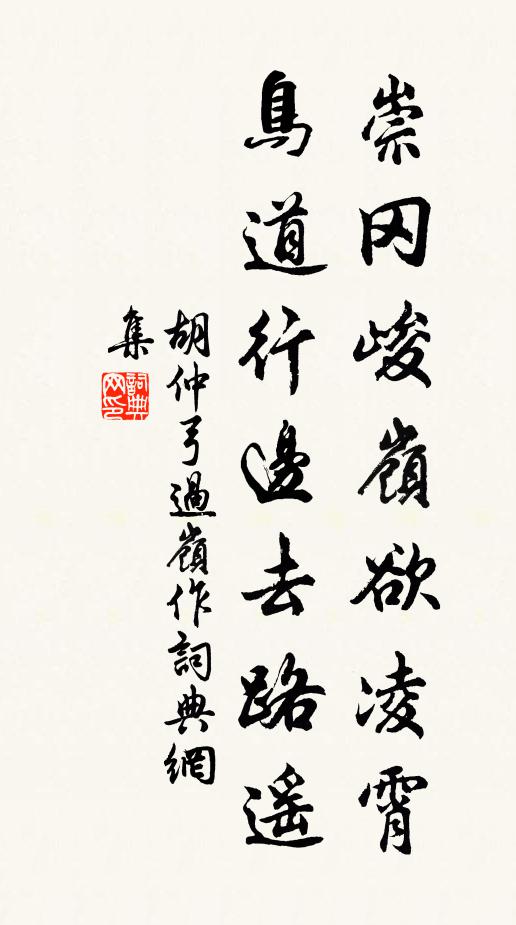 崇冈峻嶺欲凌霄
鳥道行邊去路遥
胡仲弓過嶺作詞典網
集
詞典
网印